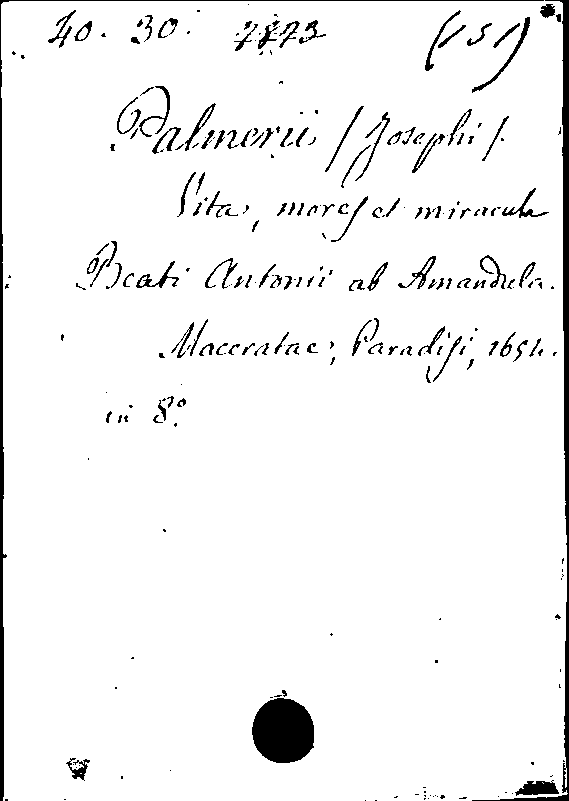 40. 30. 2873 (151)
Palmerii / Josephi /.
Vita, mores et miracula
Beati Antonii ab Amandula.
Maceratae, Paradisi, 1654.
in 8º